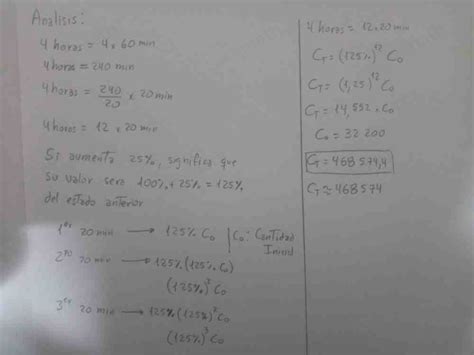 Analisis:
4 horas = 4 x 60 min
4 horas = 240 min
4 horas = 240/20 x 20 min
4 horas = 12 x 20 min
Si aumenta 25%, significa que
su valor sera 100% + 25% = 125%
del estado anterior
1er 20 min → 125% C₀ | C₀: Cantidad
Inicial
2do 20 min → 125% (125% C₀)
(125%)² C₀
3er 20 min → 125% (125%)² C₀
(125%)³ C₀
4 horas = 12 x 20 min
C_T = (125%)¹² C₀
C_T = (1,25)¹² C₀
C_T = 14,552 x C₀
C₀ = 32 200
C_T = 468 574,4
C_T ≈ 468574